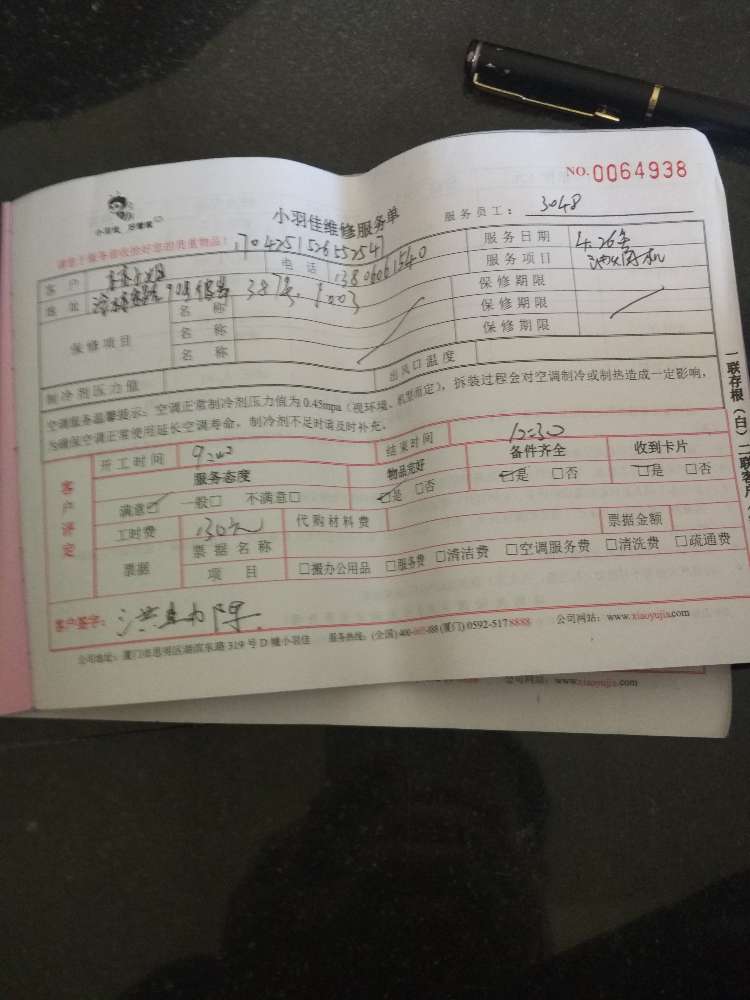 NO.0064938
小羽佳维修服务单
服务员工: 3048
请您于服务前收拾好您的贵重物品!
客 户
电 话
服务日期 4.26
服务项目 油烟机
地 址 387 1003
保修项目
名 称
名 称
名 称
保修期限
保修期限
保修期限
制冷剂压力值
出风口温度
空调服务温馨提示:空调正常制冷剂压力值为0.45mpa(视环境、机型而定),拆装过程会对空调制冷或制热造成一定影响,
为确保空调正常使用延长空调寿命,制冷剂不足时请及时补充。
客户评定
开工时间
结束时间 12:30
服务态度
物品完好
备件齐全
收到卡片
满意☑ 一般□ 不满意□
☑是 □否
☑是 □否
☑是 □否
工时费 130元
代购材料费
票据金额
票据
票据名称
项 目
□搬办公用品 □服务费 □清洁费 □空调服务费 □清洗费 □疏通费
客户签字:
公司地址:厦门市思明区湖滨东路319号D幢小羽佳 服务热线:(全国)400- -088 (厦门)0592-5178888 公司网站:www.xiaoyujia.com
公司网站:www.xiaoyujia.com
一联存根(白)二联客户